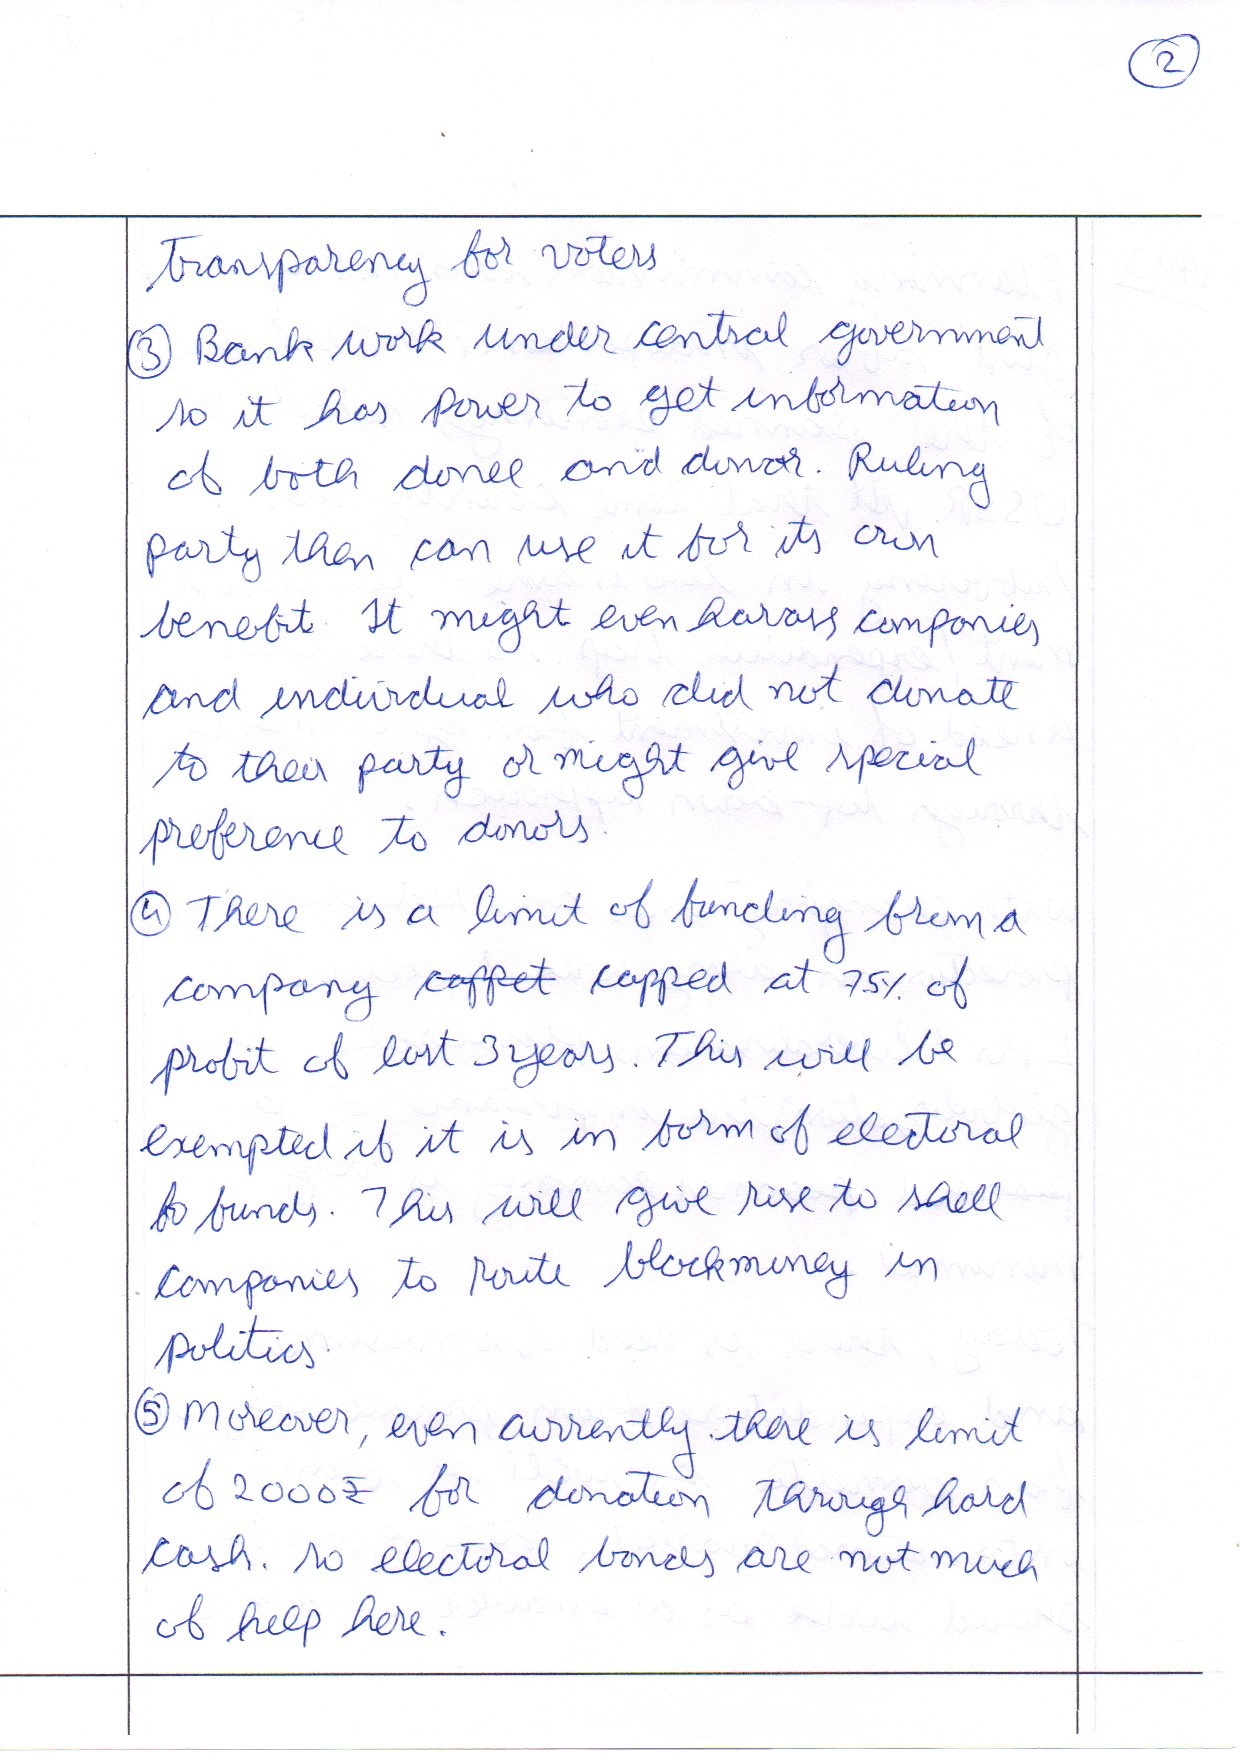 2
transparency for voters
③ Bank work under central government
so it has power to get information
of both donee and donor. Ruling
party then can use it for its own
benefit. It might even harass companies
and individual who did not donate
to their party or might give special
preference to donors.
④ There is a limit of funding from a
company coppet capped at 75% of
profit of last 3 years. This will be
exempted if it is in form of electoral
fo funds. This will give rise to shell
companies to route blackmoney in
politics.
⑤ Moreover, even currently there is limit
of 2000₹ for donation through hard
cash. so electoral bonds are not much
of help here.